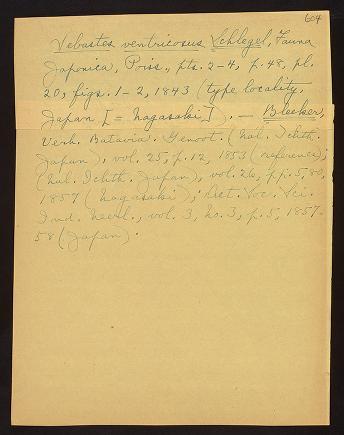 604
Sebastes ventricosus Schlegel, Fauna
Japonica, Poiss., pts. 2-4, p. 48, pl.
20, figs. 1-2, 1843 (type locality,
Japan [= Nagasaki]). — Bleeker,
Verh. Batavia. Genoot. (Nal. Ichth.
Japan), vol. 25, p. 12, 1853 (reference);
(Nal. Ichth. Japan), vol. 26, pp. 5, 80,
1857 (Nagasaki); Act. Soc. Sci.
Ind. Neerl., vol. 3, No. 3, p. 5, 1857-
58 (Japan).